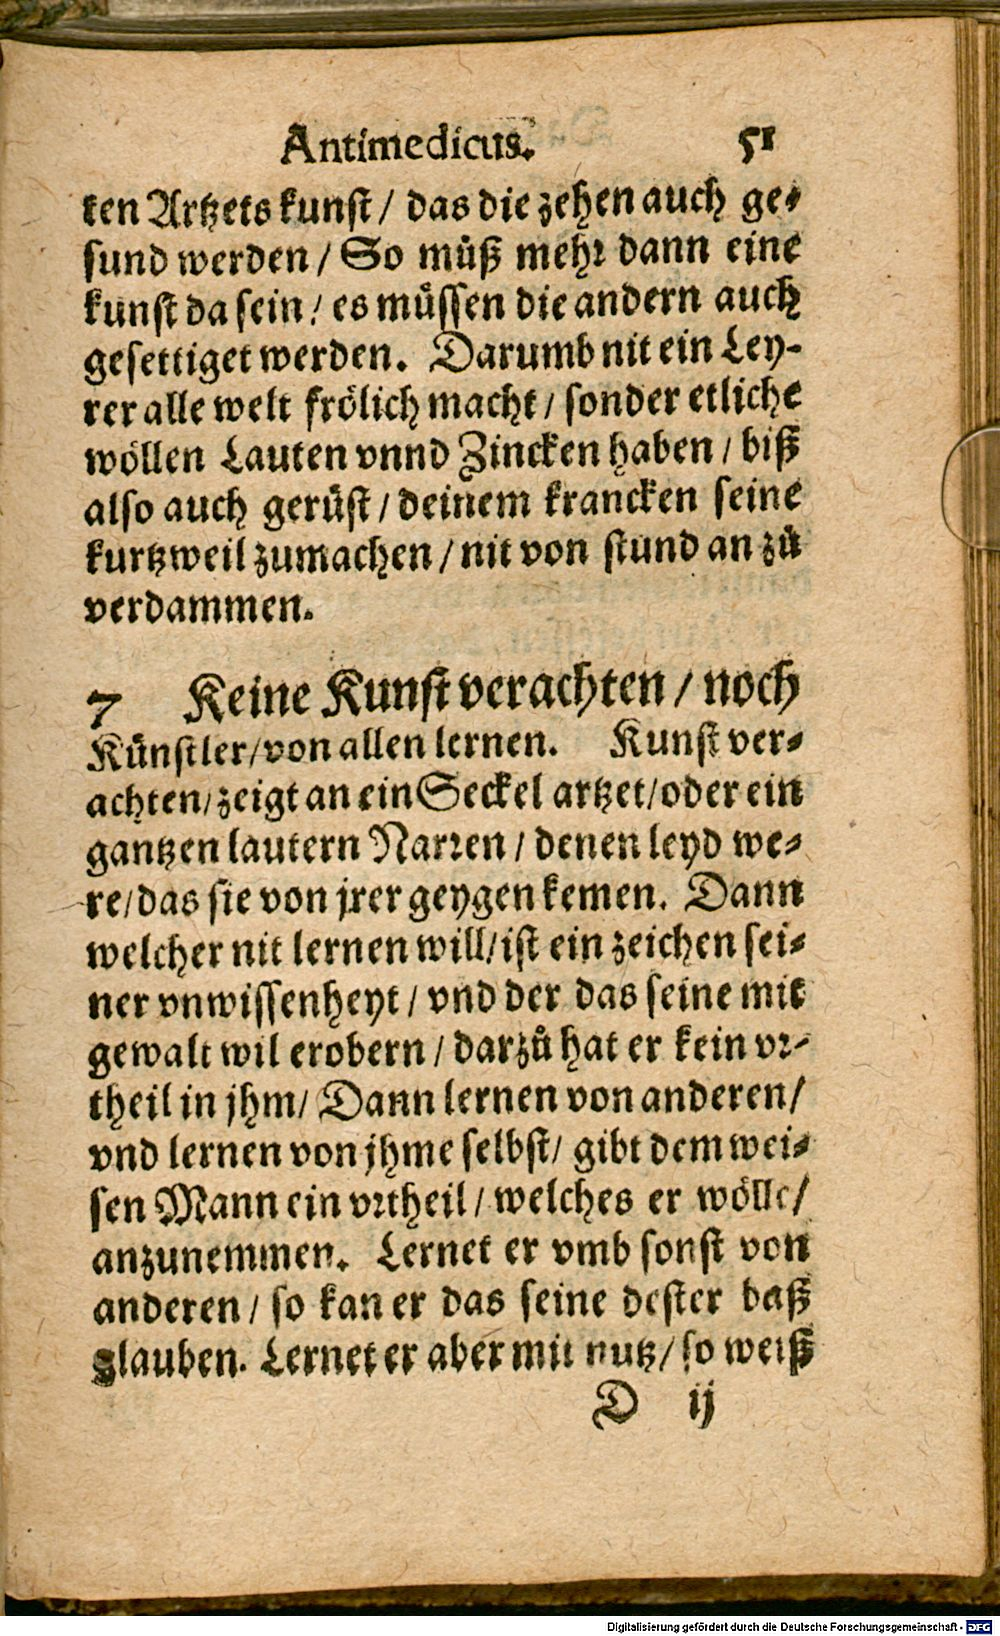 Antimedicus. 51
ten Artzets kunst / das die zehen auch ge-
sund werden / So müß mehr dann eine
kunst da sein / es müssen die andern auch
gesettiget werden. Darumb nit ein Ley-
rer alle welt frölich macht / sonder etliche
wöllen Lauten vnnd Zincken haben / biß
also auch gerüst / deinem krancken seine
kurtzweil zumachen / nit von stund an zů
verdammen.
7 Keine Kunst verachten / noch
Künstler / von allen lernen. Kunst ver-
achten / zeigt an ein Seckel artzet / oder ein
gantzen lautern Narren / denen leyd we-
re / das sie von jrer geygen kemen. Dann
welcher nit lernen will / ist ein zeichen sei-
ner vnwissenheyt / vnd der das seine mit
gewalt wil erobern / darzů hat er kein vr-
theil in jhm / Dann lernen von anderen /
vnd lernen von jhme selbst / gibt dem wei-
sen Mann ein vrtheil / welches er wölle /
anzunemmen. Lernet er vmb sonst von
anderen / so kan er das seine dester baß
glauben. Lernet er aber mit nutz / so weiß
D ij
Digitalisierung gefördert durch die Deutsche Forschungsgemeinschaft - DFG